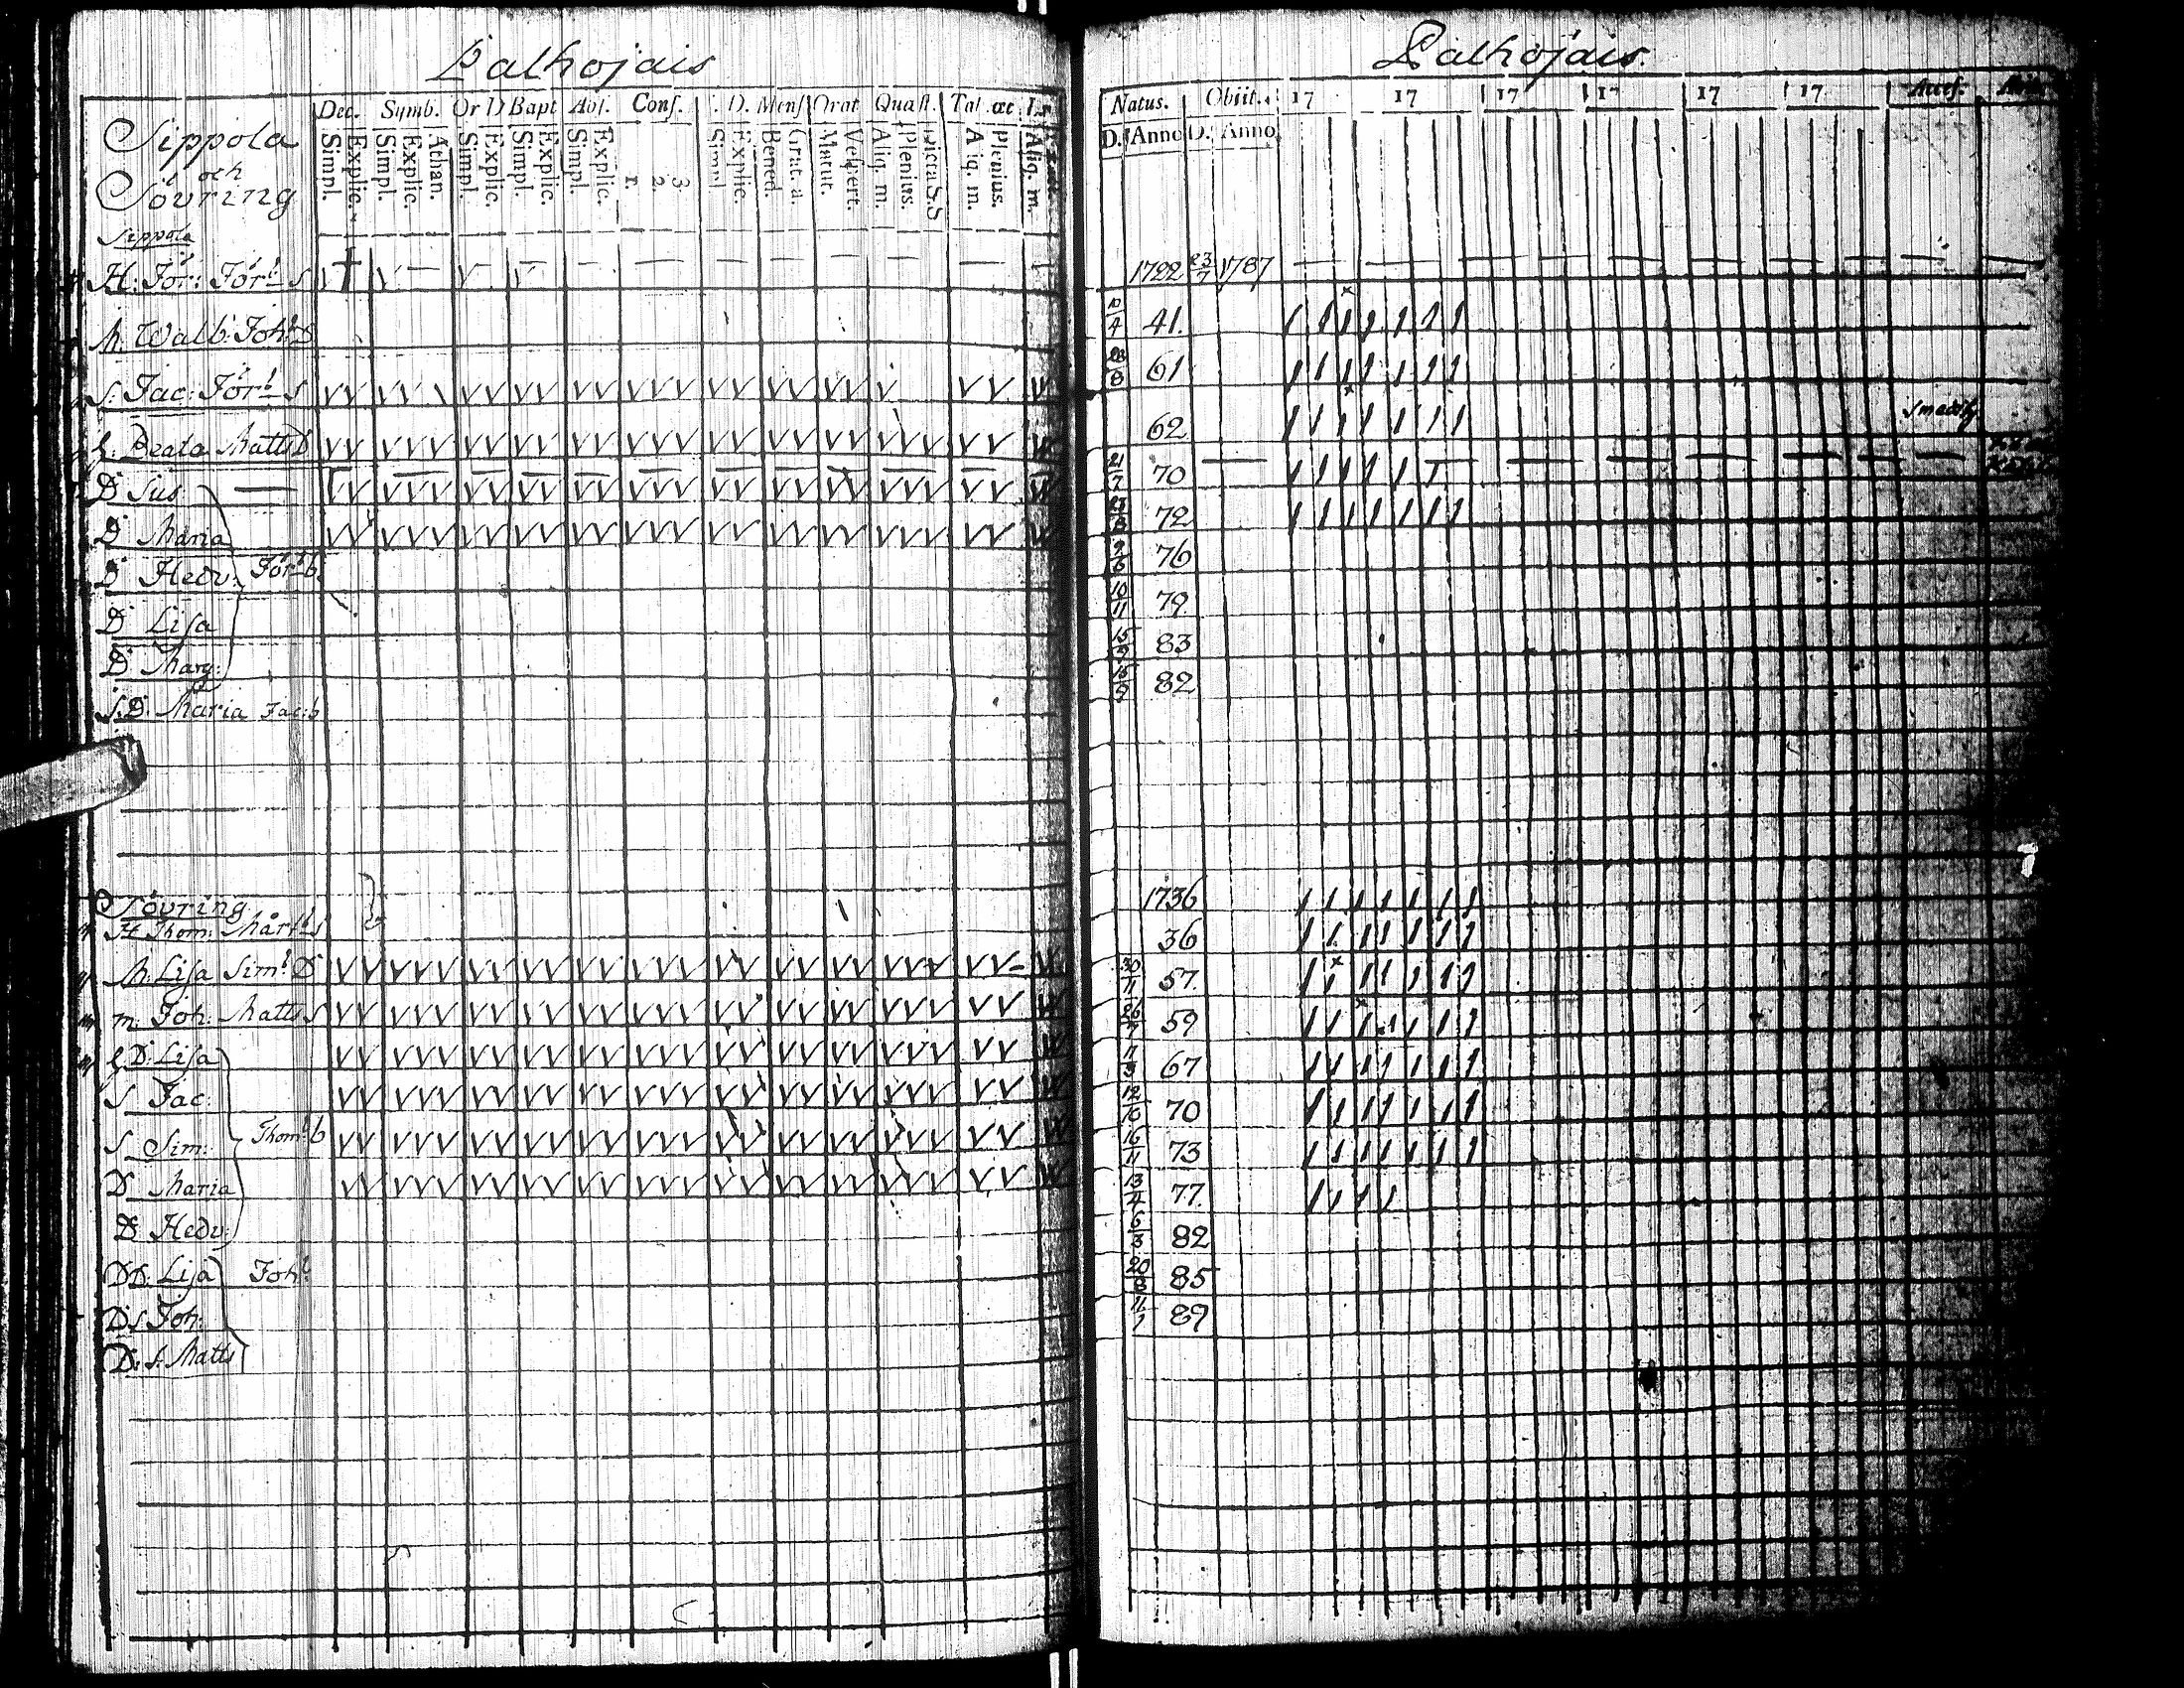 Palhojais
Dec. Symb. Or D Bapt Abs. Conf. D. Mens Orat Quæst. Tab. œc
Simpl. Explic. Simpl. Explic. Athan. Simpl. Explic. Simpl. Explic. Simpl. Explic. 1. 2. 3 Simpl. Explic. Bened. Grat. a. Matut. Vespert. Aliq. m. Plenius. Dicta S.S Aliq. m. Plenius. Aliq. m.
Sippola
och
Sövring
Sippola
H: Jör: Jör:s S
M. Walb: Joh:s D
S: Jac: Jör:s S
h. Beata Matts D
D Sus
D Maria
D Hedv: Jör:s b.
D Lisa
D Marg:
S. D. Maria Jac: b
Sövring
H Thom: Mårt:s S
M. Lisa Sim:s D
m. Joh: Matts S
h D. Lisa
S Jac:
S Sim: Thom:s b
D Maria
D Hedv:
DD: Lisa Joh:s
D S Joh:
D. S. Matts
Palhojais.
Natus. Obiit. 17 17 17 17 17 17 Access.
D. Anno D. Anno
1722 23/7 1787
10/4 41.
61
62
21/7 70
72
76
10/11 79
83
82
1736
36
30/11 57.
26/7 59
67
12/10 70
16/11 73
13/4 77.
6/3 82
20/8 85
11/1 89